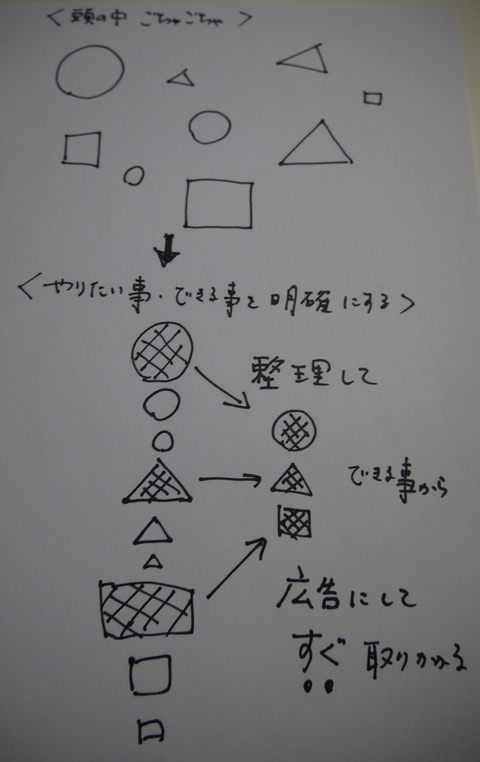 <頭の中 ごちゃごちゃ>
<やりたい事・できる事を明確にする>
整理して
できる事から
広告にして
すぐ取りかかる